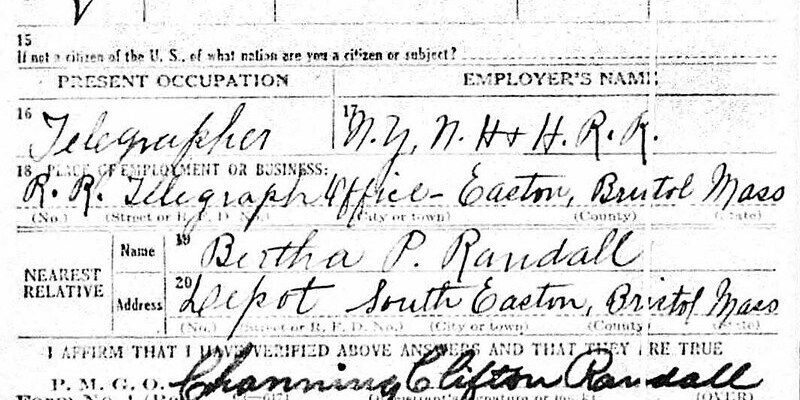 15
If not a citizen of the U. S., of what nation are you a citizen or subject?
PRESENT OCCUPATION EMPLOYER'S NAME
16 Telegrapher 17 N. Y. N. H & H. R. R.
18 PLACE OF EMPLOYMENT OR BUSINESS:
R. R. Telegraph Office - Easton, Bristol Mass
(No.) (Street or R. F. D. No.) (City or town) (County) (State)
NEAREST RELATIVE
Name 19 Bertha P. Randall
Address 20 Depot South Easton, Bristol Mass
(No.) (Street or R. F. D. No.) (City or town) (County) (State)
I AFFIRM THAT I HAVE VERIFIED ABOVE ANSWERS AND THAT THEY ARE TRUE
P. M. G. O. Channing Clifton Randall
Form No. 1 (OVER)